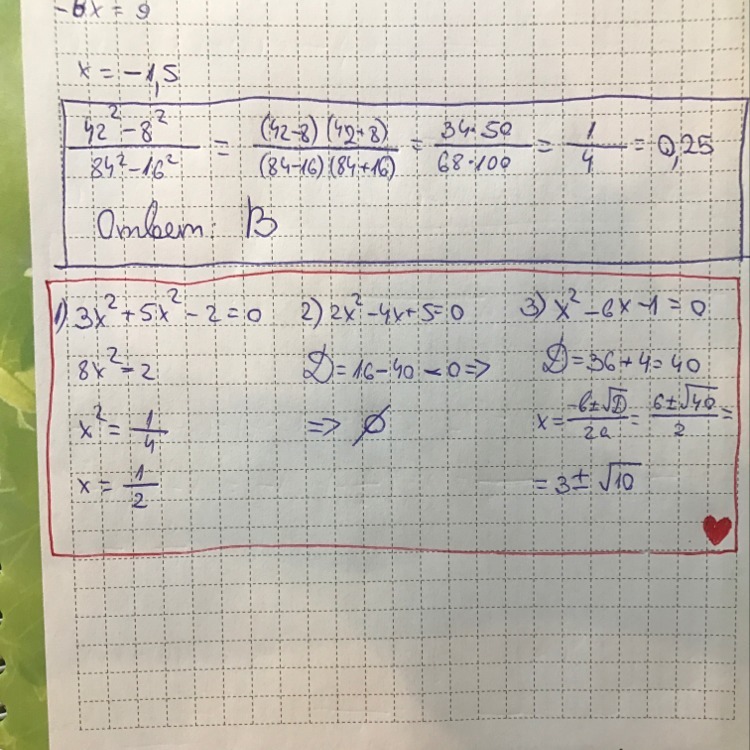 -6x = 9
x = -1,5
(42² - 8²)/(84² - 16²) = ((42-8)(42+8))/((84-16)(84+16)) = (34·50)/(68·100) = 1/4 = 0,25
Ответ: В
1) 3x² + 5x² - 2 = 0
8x² = 2
x² = 1/4
x = 1/2
2) 2x² - 4x + 5 = 0
D = 16 - 40 < 0 =>
=> ∅
3) x² - 6x - 1 = 0
D = 36 + 4 = 40
x = (-b ± √D)/(2a) = (6 ± √40)/2 =
= 3 ± √10